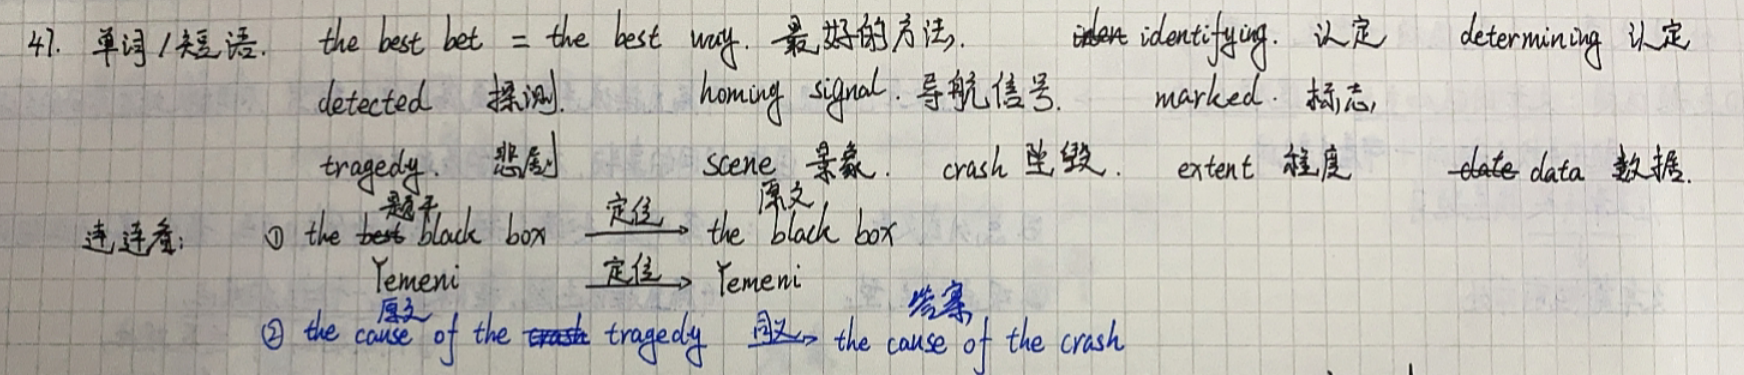 47. 单词/短语. the best bet = the best way. 最好的方法. identifying. 认定 determining 认定
detected 探测. homing signal. 导航信号. marked. 标志,
tragedy. 悲剧 scene 景象. crash 坠毁. extent 程度 date data 数据.
题干 原文
连连看: ① the best black box 定位→ the black box
Yemeni 定位→ Yemeni
原文 答案
② the cause of the crash tragedy 同义→ the cause of the crash